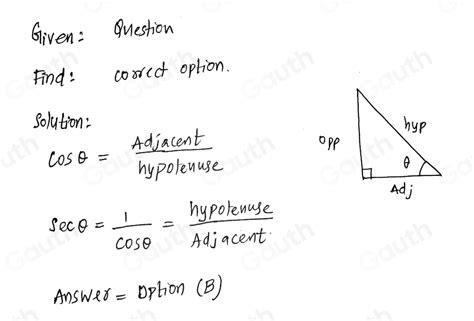 Given: Question
Find: correct option.
Solution:
cos θ = Adjacent / hypotenuse
opp
hyp
θ
Adj
Sec θ = 1 / cos θ = hypotenuse / Adjacent.
Answer = Option (B)
Gauth